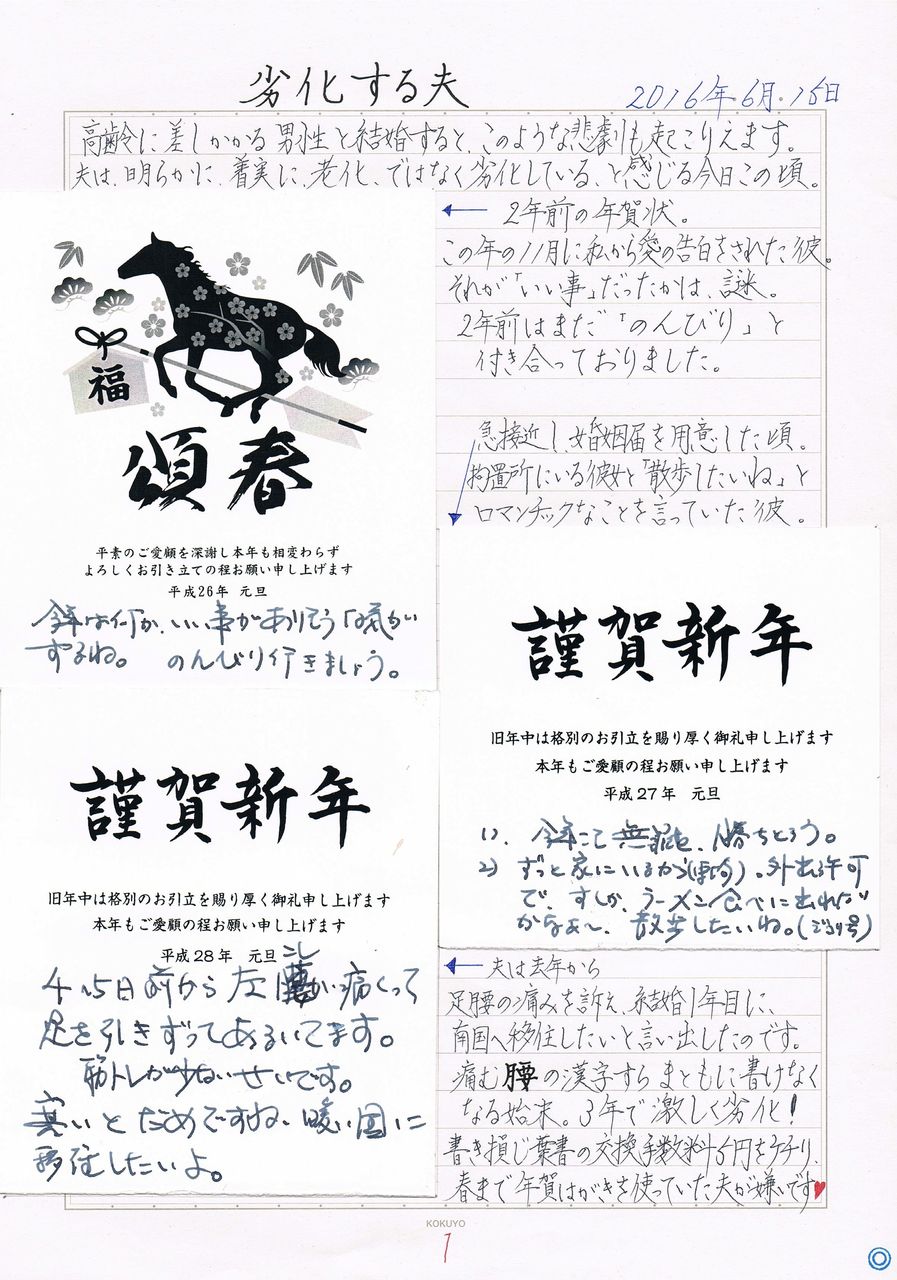 劣化する夫
2016年.6月.15日
高齢に差しかかる男性と結婚すると、このような悲劇も起こりえます。
夫は、明らかに、着実に、老化、ではなく劣化している、と感じる今日この頃。
2年前の年賀状。
この年の11月に私から愛の告白をされた彼。
それが「いい事」だったかは、謎。
2年前はまだ「のんびり」と
付き合っておりました。
急接近し、婚姻届を用意した頃。
拘置所にいる彼女と「散歩したいね」と
ロマンチックなことを言っていた彼。
福
頌春
平素のご愛顧を深謝し本年も相変わらず
よろしくお引き立ての程お願い申し上げます
平成26年 元旦
今年は何か、いい事がありそうな気がい
するね。 のんびり行きましょう。
謹賀新年
旧年中は格別のお引立を賜り厚く御礼申し上げます
本年もご愛顧の程お願い申し上げます
平成27年 元旦
1). 今年こそ無罪を、勝ちとろう。
2) ずっと家にいるから 。外出許可
で、すしか、ラーメン食べに出れない
かなぁ〜、散歩したいね。
謹賀新年
旧年中は格別のお引立を賜り厚く御礼申し上げます
本年もご愛顧の程お願い申し上げます
平成28年 元旦
こし
4〜5日前から左 が痛くって
足を引きずってあるいてます。
筋トレが少ないせいです。
寒いとだめですね、暖い国に
移住したいよ。
夫は去年から
足腰の痛みを訴え、結婚1年目に、
南国へ移住したいと言い出したのです。
痛む腰の漢字すらまともに書けなく
なる始末。3年で激しく劣化!
書き損じ葉書の交換手数料5円をケチり、
春まで年賀はがきを使っていた夫が嫌いです♥
KOKUYO
1